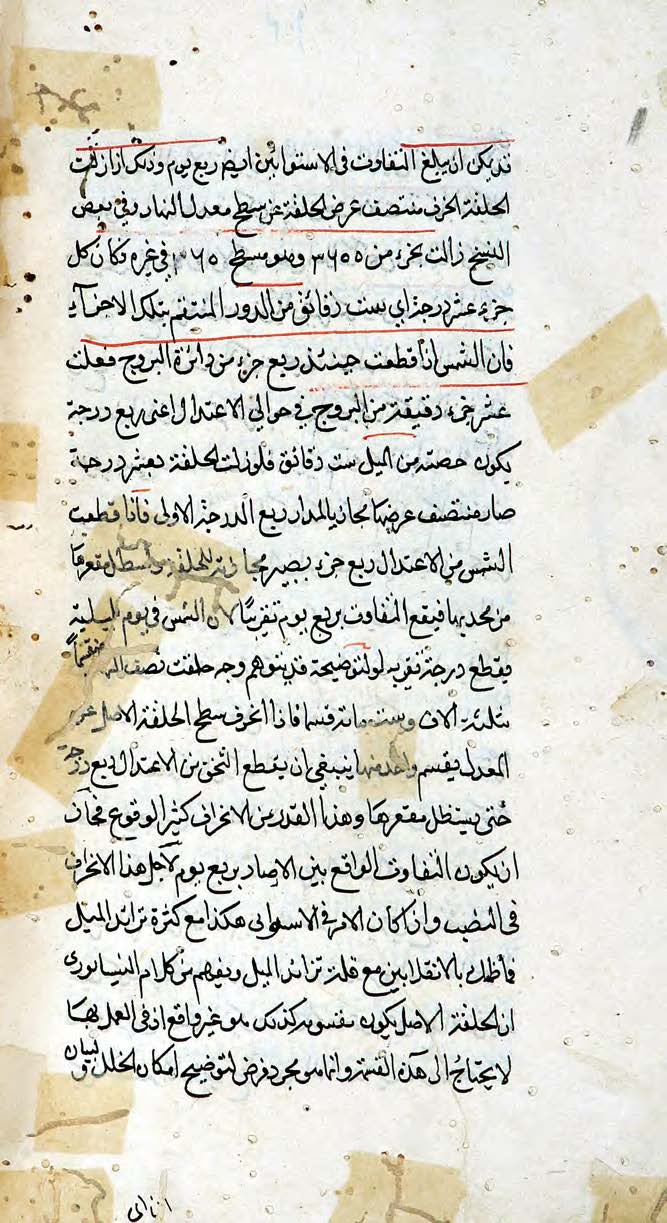 قد يمكن ان يبلغ التفاوت فى الاستوائين ايضا ربع يوم وذلك اذا زالت
الحلقة انحرف منتصف عرض الحلقة عن سطح معدل النهار وفى بعض
النسخ زالت بجزء من ٣٦٥٥ وهو مسطح ٣٦٥ فى غيره فكان كل
جزء عشر درجة اى ست دقائق من الدور المنقسم بتلك الاجزآء
فان الشمس اذا قطعت حينئذ ربع جزء من دائرة البروج فعلت
عشر جزء دقيقة من البروج فى حوالى الاعتدال اعنى ربع درجة
يكون حصته من الميل ست دقائق فلو زالت الحلقة بعشر درجة
صار منتصف عرضها محاذيا لمدار ربع الدرجة الاولى فاذا قطعت
الشمس من الاعتدال ربع جزء يصير محاذية للحلقة مقعرها
من محدبها فيقع التفاوت بربع يوم تقريبًا لان الشمس فى يوم بليلته
يقطع درجة تقريبه لو لتوضيحه قد يتوهم وجه حلقت نصف
بثلثة الاف وستمائة قسما فاذا انحرف سطح الحلقة الاصل عن
المعدل بقسم واحد منها ينبغى ان يقطع الشمس من الاعتدال ربع درجة
حتى يستظل مقعرها وهذا القدر من الانحراف كثير الوقوع فجاز
ان يكون التفاوت الواقع بين الارصاد بربع يوم لاجل هذا الانحراف
فى النصب واذا كان الامر فى الاستوائى هكذا مع كثرة تزائد الميل
فما ظنك بالانقلابين مع قلة تزائد الميل ويفهم من كلام النيسابورى
ان الحلقة الاصل يكون مقسومة كذلك هو غير واقع اذ فى العمل بها
لا يحتاج الى هذه القسمة وانما هو مجرد فرض لتوضيح امكان الخلل وبيان